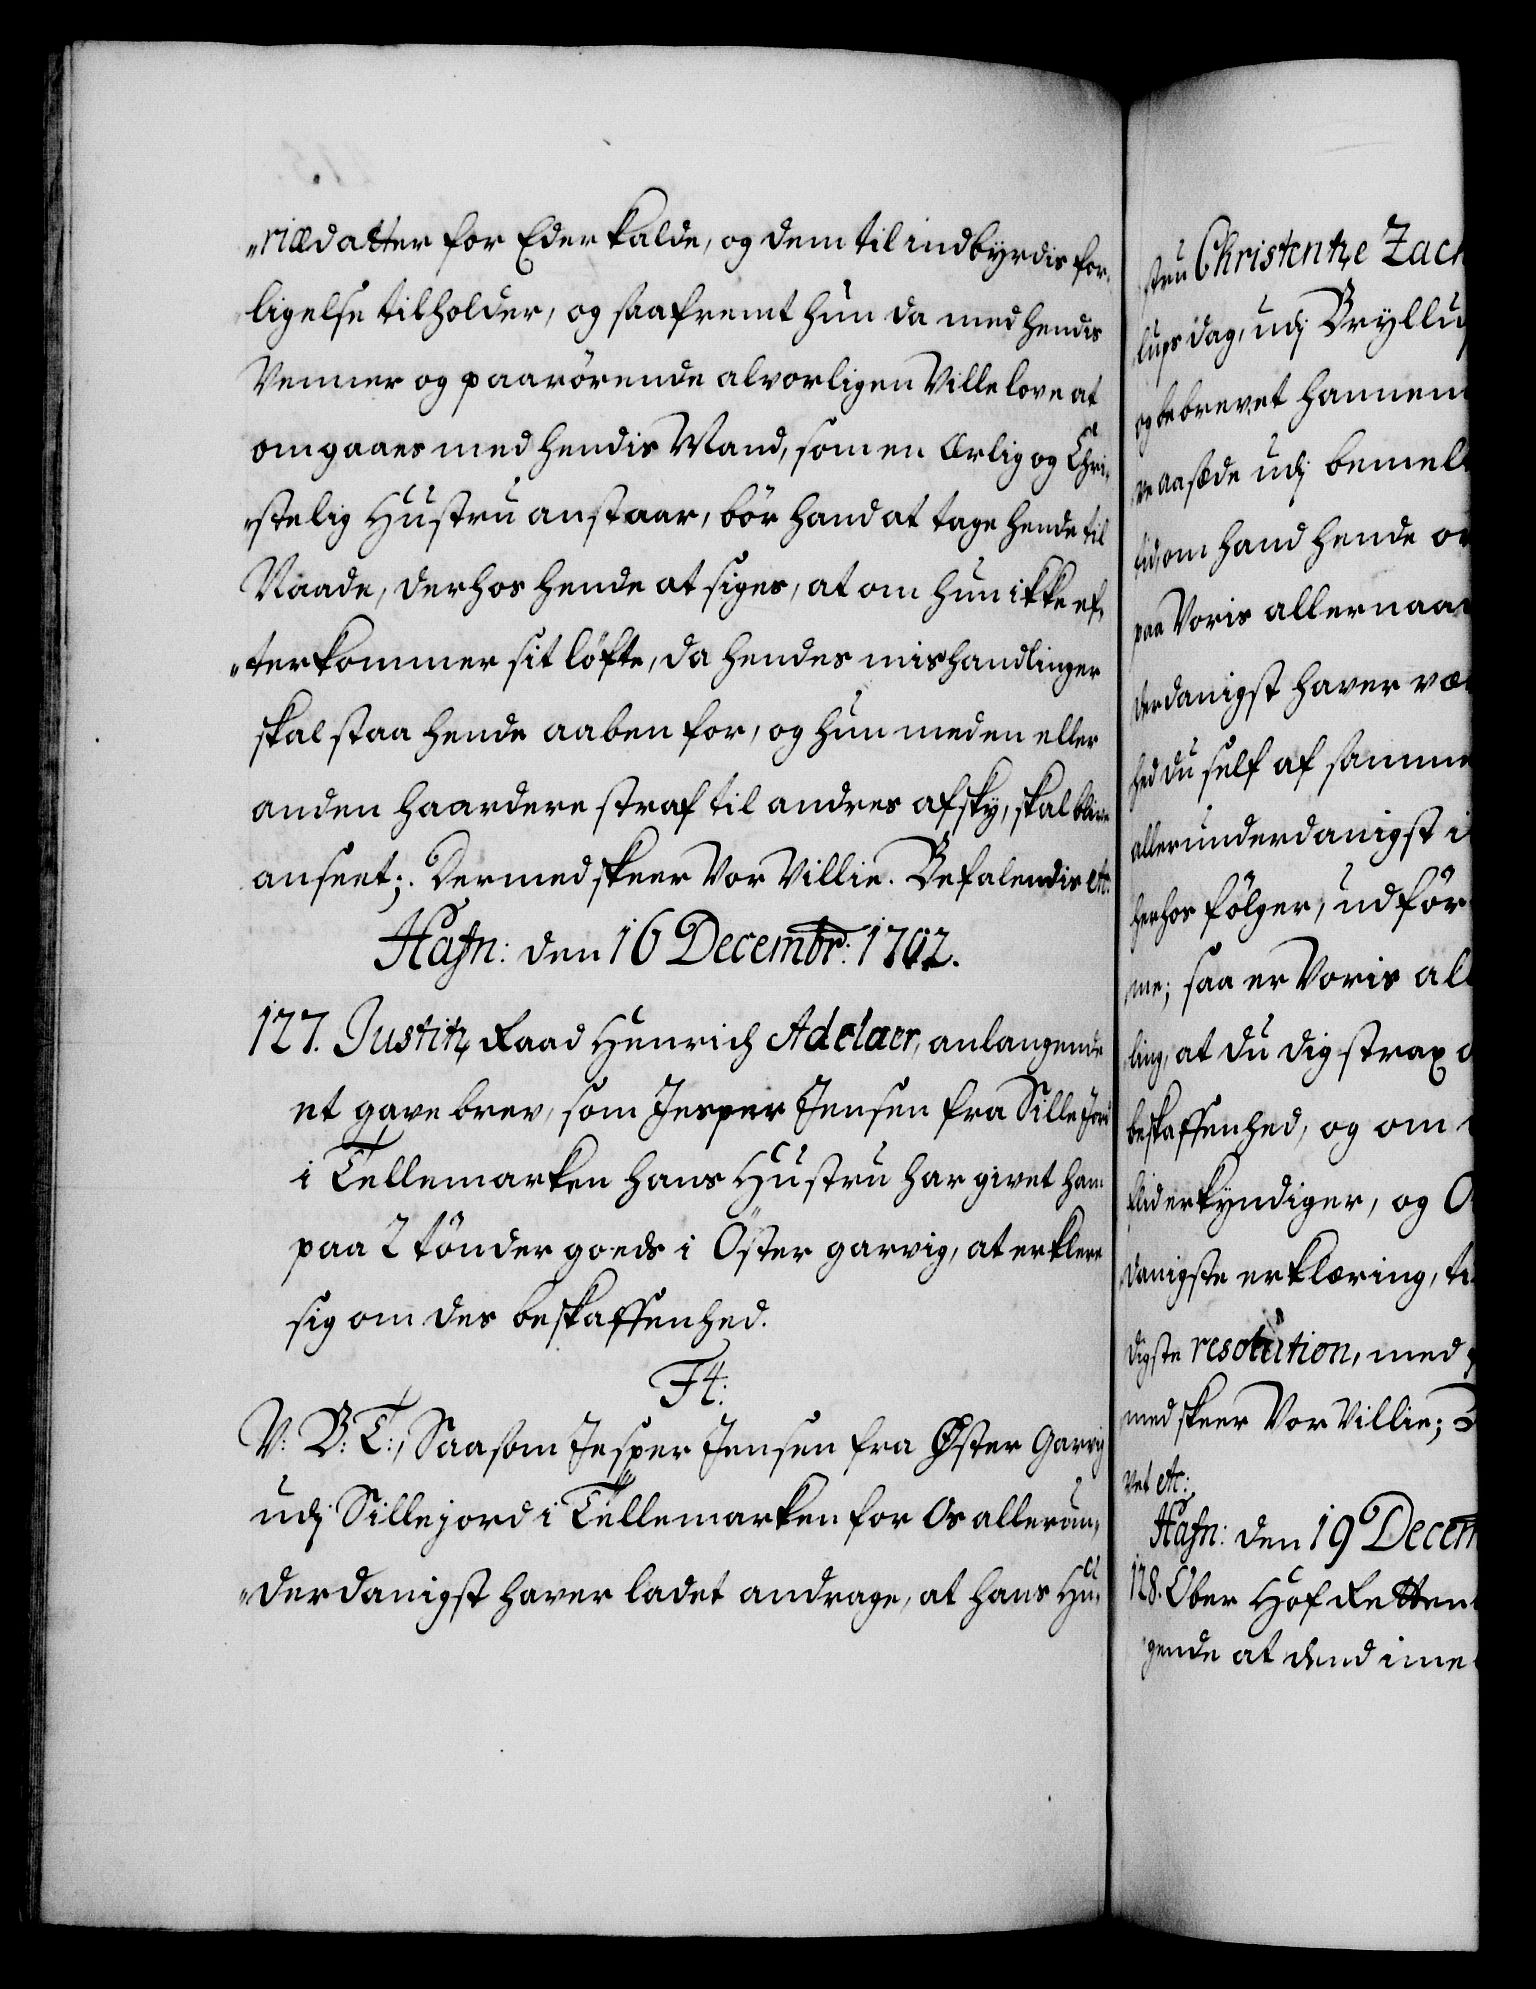 „riædatter for Eder kalde, og dem til indbyrdis for„
ligelse tilholder, og saafremt hun da med hendis
Venner og paarørende alvorligen Ville love at
omgaaes med hendis Mand, som en Ærlig og Chri„
„stelig Hustru anstaar, bör hand at tage hende til
Naade, derhos hende at siges, at om hun ikke ef„
„terkommer sit löfte, da hendes mishandlinger
skal staa hende aaben for, og hun med en eller
anden haardere straf til andres afsky, skal blive
anseet; Dermed skeer Vor Villie. Befalendis etc:
Hafn: den 16 Decembr: 1702.
127. Justitz Raad Henrich Adelaer, anlangende
et gave brev, som Jesper Jensen fra Sillejord
i Tellemarken hans Hustru har givet ham
paa 2 tönder goeds i Öster garvig, at erklere
sig om des beskaffenhed.
F4:
V: B: T:, Saasom Jesper Jensen fra Øster Garvig
udj Sillejord i Tellemarken for Os allerun„
„derdanigst haver ladet andrage, at hans Hu„
stru Christentze Zach
lups dag, udj Bryllup
og bebrevet hannem
re aasæde udj bemel
tid, om hand hende ov
paa Voris allernaa
derdanigst haver væ
hed du self af samme
allerunderdanigst i
herhos fölger, udför
me; saa er Voris al
ling, at du dig strax o
beskaffenhed, og om
flid erkyndiger, og
danigste erklæring, ti
digste resolution, med
med skeer Vor Villie;
vet etc:
Hafn: den 19 Decem
128. Ober Hof Retten
gende at dend ime